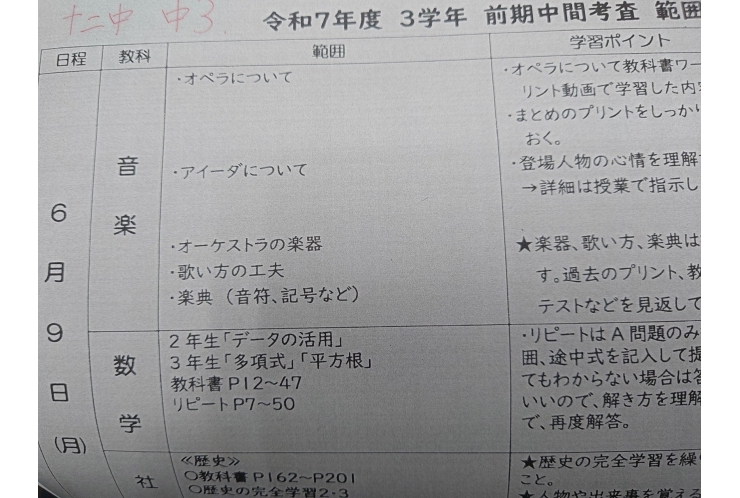 十二中 中3
令和7年度 3学年 前期中間考査 範囲
日程 教科 範囲 学習ポイント
6月9日(月)
音楽
・オペラについて
・アイーダについて
・オーケストラの楽器
・歌い方の工夫
・楽典 (音符、記号など)
・オペラについて教科書ワー
リント動画で学習した内容
・まとめのプリントをしっかり
おく。
・登場人物の心情を理解
→詳細は授業で指示し
★楽器、歌い方、楽典は
す。過去のプリント、教
テストなどを見返して
数学
2年生「データの活用」
3年生「多項式」「平方根」
教科書P12~47
リピートP7~50
・リピートはA問題のみ
囲、途中式を記入して提
てもわからない場合は答
いいので、解き方を理解
で、再度解答。
社
≪歴史≫
○教科書P162~P201
○歴史の完全学習2・3
★歴史の完全学習を繰
こと。
★人物や出来事を覚える